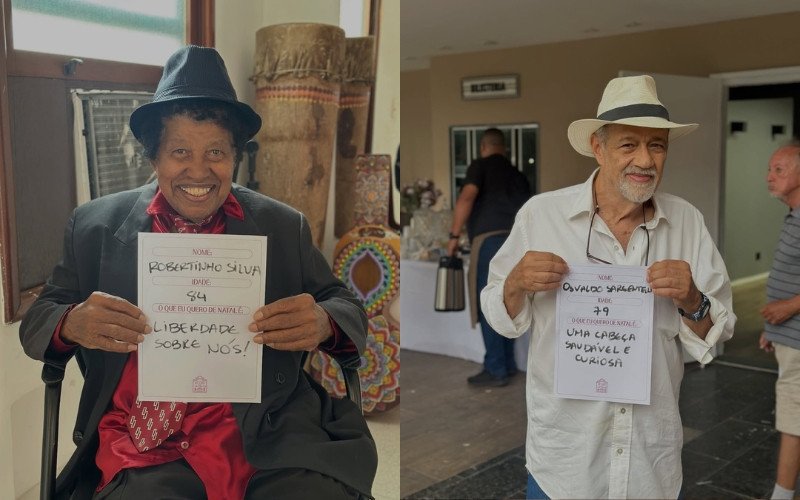 NOME:
ROBERTINHO SILVA
IDADE:
84
O QUE EU QUERO DE NATAL:
LIBERDADE
SOBRE NÓS!
NOME:
OSVALDO SARGENTELLI
IDADE:
79
O QUE EU QUERO DE NATAL:
UMA CABEÇA
SAUDÁVEL E
CURIOSA